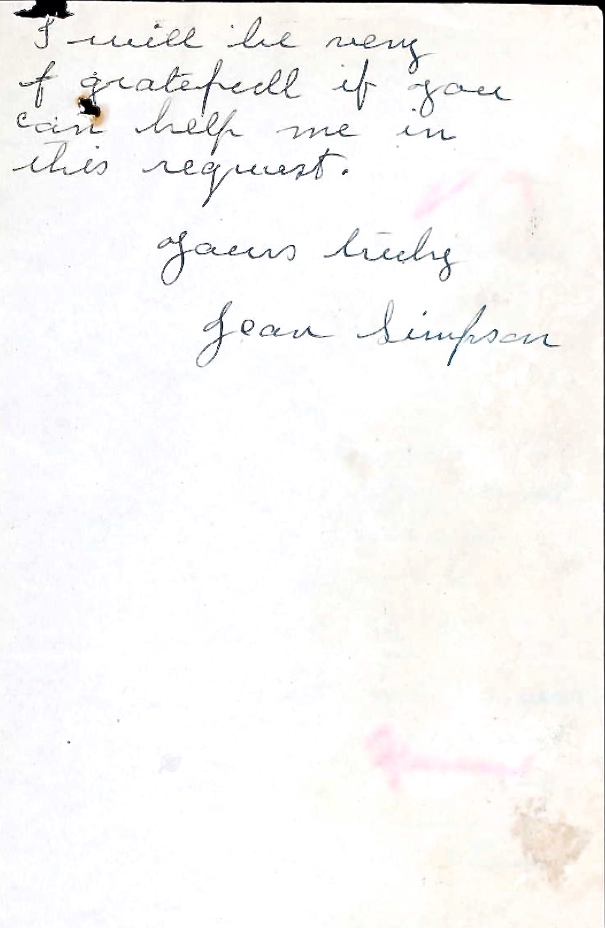 I will be very
f gratefull if you
can help me in
this request.
Yours truly
Jean Simpson